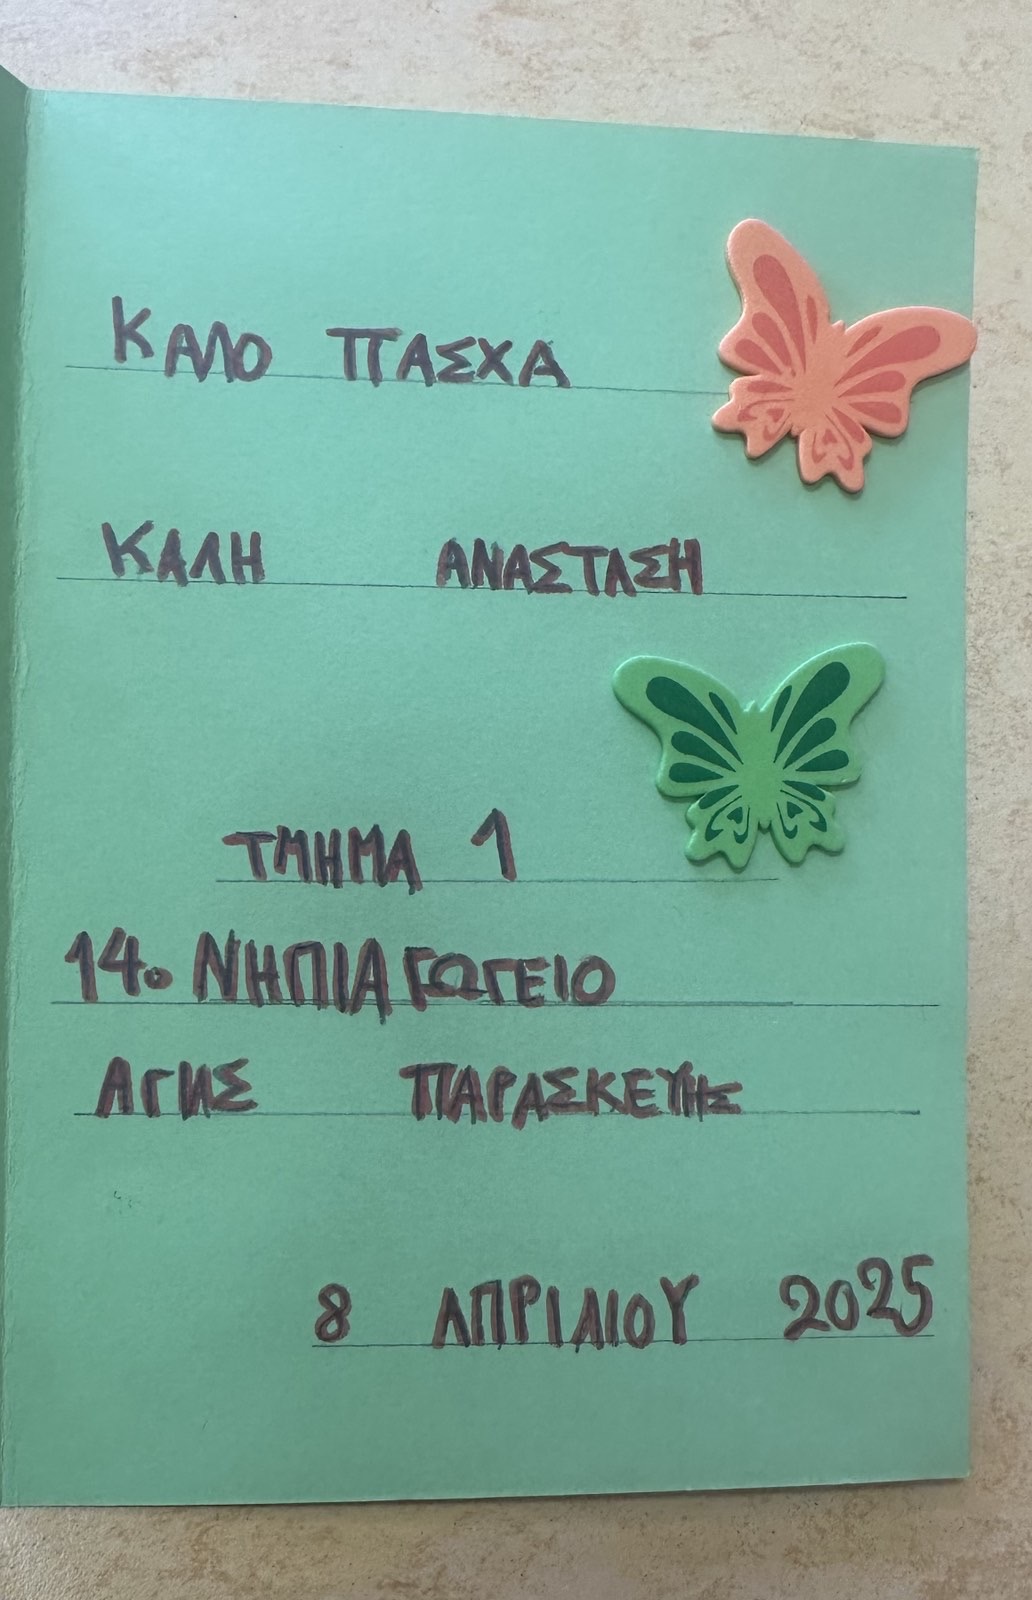 ΚΑΛΟ ΠΑΣΧΑ
ΚΑΛΗ ΑΝΑΣΤΑΣΗ
ΤΜΗΜΑ 1
14ο ΝΗΠΙΑΓΩΓΕΙΟ
ΑΓΙΑΣ ΠΑΡΑΣΚΕΥΗΣ
8 ΑΠΡΙΛΙΟΥ 2025